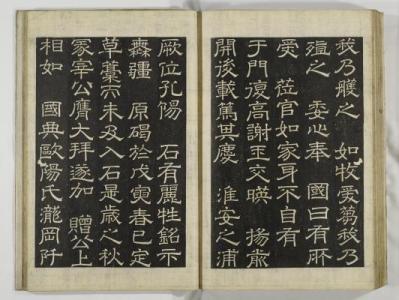 我乃護之 如牧愛蒭我乃
溫之 委心奉 國曰有所
受 莅官如家身不自有
于門復高謝玉交暎 揚
開後載篤其慶 淮安之浦
厥位孔陽 石有麗牲銘示
無疆 原碣於戊寅春已定
草藁而未及入石是歲之秋
冢宰公膺大拜遂加 贈公上
相如 國典歐陽氏瀧岡阡